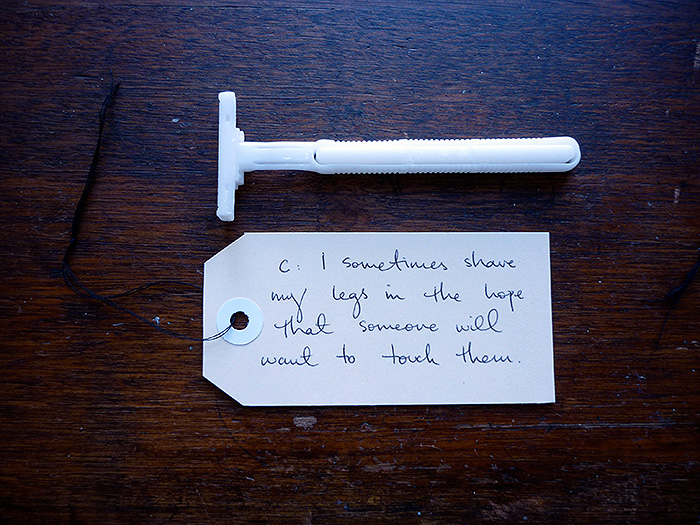 C: I sometimes shave
my legs in the hope
that someone will
want to touch them.